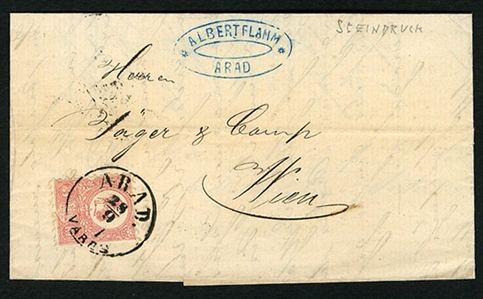 ALBERT FLAMM
ARAD
STEINDRUCK
Herren
Jäger & Comp
Wien
ARAD.
28
9
VÁROS